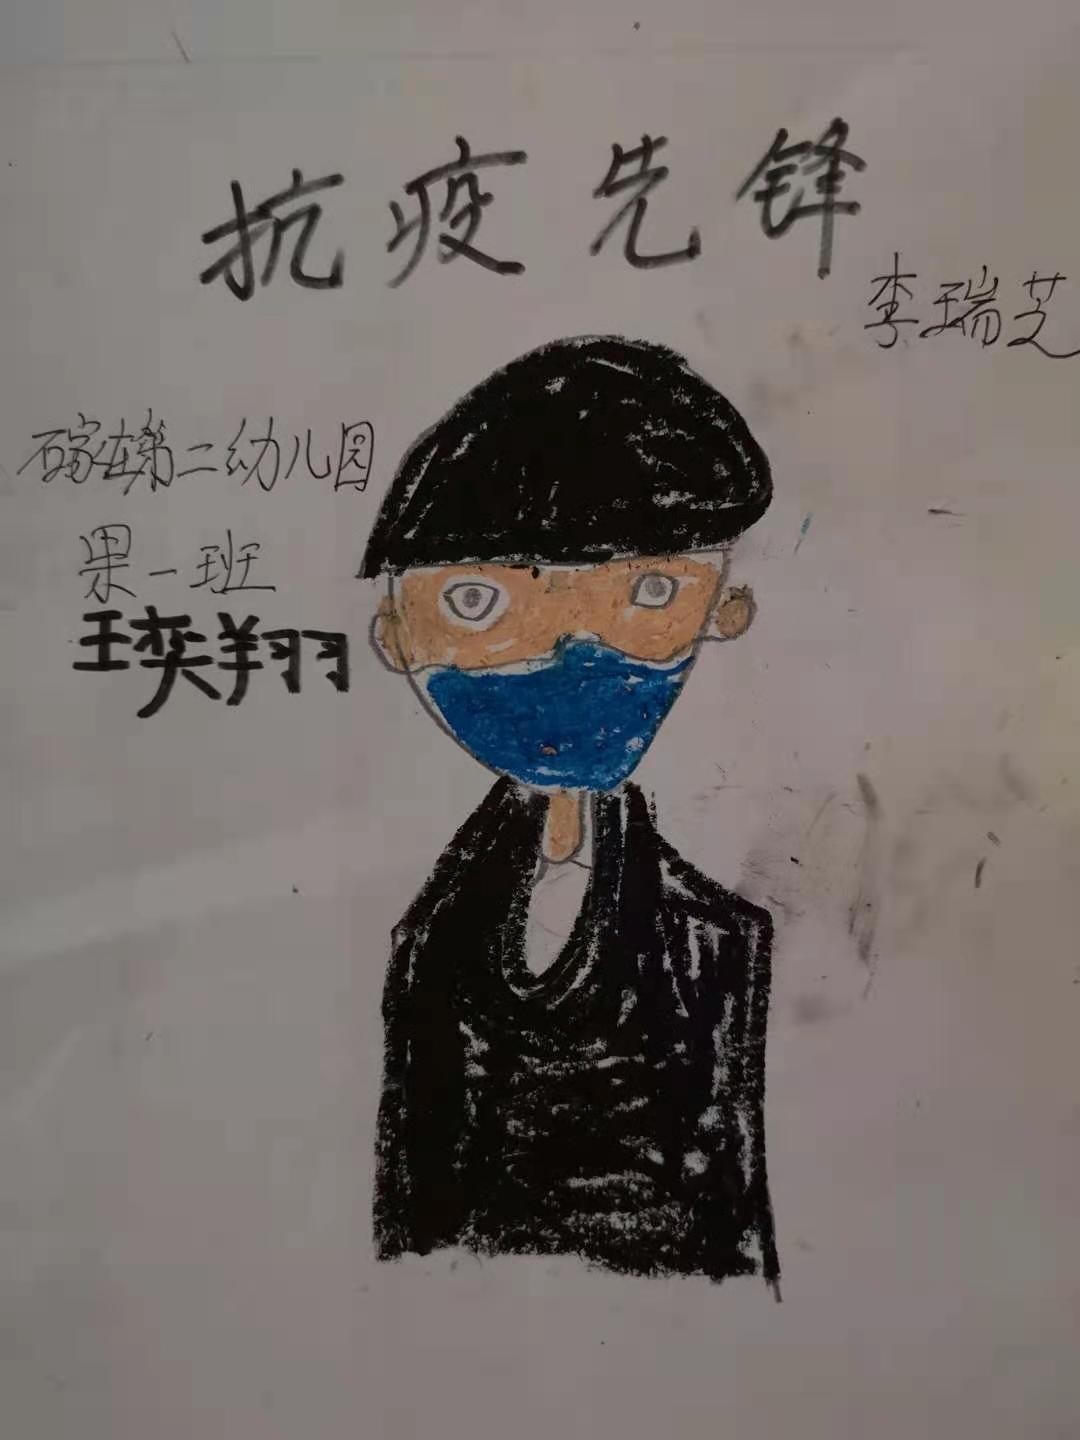 抗疫先锋
李瑞芝
石家庄第二幼儿园
果一班
王奕翔